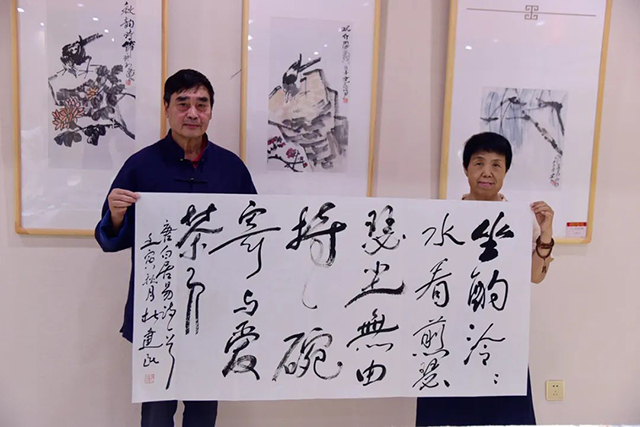 坐酌泠〻
水看煎瑟
瑟尘無由
持一碗
寄与愛
茶人
唐白居易诗一首
壬寅秋月杜建
秋韵